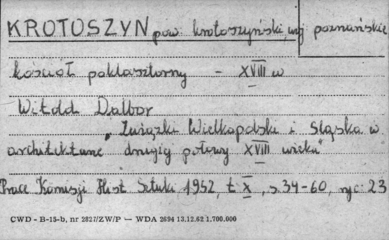 KROTOSZYN pow. krotoszyński, woj poznańskie
kościół poklasztorny - XVIII w
Witold Dalbor
"Związki Wielkopolski i Śląska w
architekturze drugiej połowy XVIII wieku"
Prace Komisji Hist Sztuki 1952, t X, s. 34-60, ryc. 23
CWD - B-15-b, nr 2827/ZW/P — WDA 2694 13.12.62 1.700.000